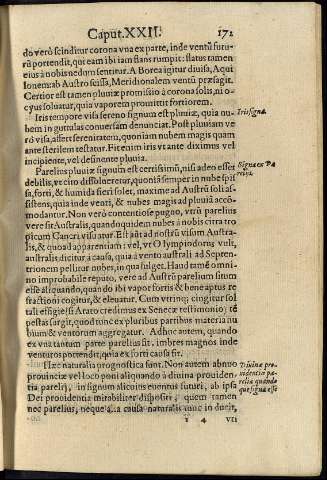 Caput. XXII. 172
do verò scinditur corona vna ex parte, inde ventũ futu-
rũ portendit, qui eam ibi iam stans rumpit: flatus tamen
eius à nobis nedum sentitur. A Borea igitur diuisa, Aqui
lonem: ab Austro scissa, Meridionalem ventũ præsagit.
Certior est tamen pluuiæ promissio à corona solis, ni o-
cyus soluatur, quia vaporem promittit fortiorem.
Iris tempore visa sereno signum est pluuiæ, quia nu-
bem in guttulas conuersam denunciat. Post pluuiam ve
rò visa, affert serenitatem, quoniam nubem magis quam
ante sterilem testatur. Fit enim iris vt ante diximus vel
incipiente, vel desinente pluuia.
Iris signa.
Parelius pluuiæ signum est certissimũ, nisi adeo esset
debilis, vt cito dissolueretur, quoniã semper in nube spis
sa, forti, & humida fieri solet, maxime ad Austrũ solis as-
sistens, quia inde venti, & nubes magis ad pluuiã acco-
modantur. Non verò contentiose pugno, vtrũ parelius
vere sit Australis, quandoquidem nubes à nobis citra tro
picum Cancri visuntur. Est autẽ ad nostrũ visum Austra-
lis, & quoad apparentiam: vel, vt Olympiodorus vult,
australis dicitur à causa, quia à vento australi ad Septen-
trionem pellitur nubes, in qua fulget. Haud tamẽ omni-
no improbabile reputo, vere ad Austrũ parelium situm
esse aliquando, quando ibi vapor fortis & bene aptus re
fractioni cogitur, & eleuatur. Cum vtrinq; cingitur sol
tali effigie (si Arato credimus ex Senecæ testimonio) tẽ
pestas surgit, quod tunc ex pluribus partibus materia nu
bium & ventorum aggregatur. Adhuc autem, quando
ex vna tantum parte parelius sit, imbres magnos inde
venturos portendit, quia ex forti causa fit.
Signa ex Pa
relijs.
Hæc naturalia prognostica sunt. Non autem abnuo
prouinciæ vel loco poni aliquando à diuina prouiden-
tia parelij, in signum alicuius euentus futuri, ab ipsa
Dei prouidentia mirabiliter dispositi, quem tamen
nec parelius, neque alia causa naturalis tunc in ducit,
Diuinæ pro
uidentiæ pa-
relia quando
que signa esse
Y 4 vti